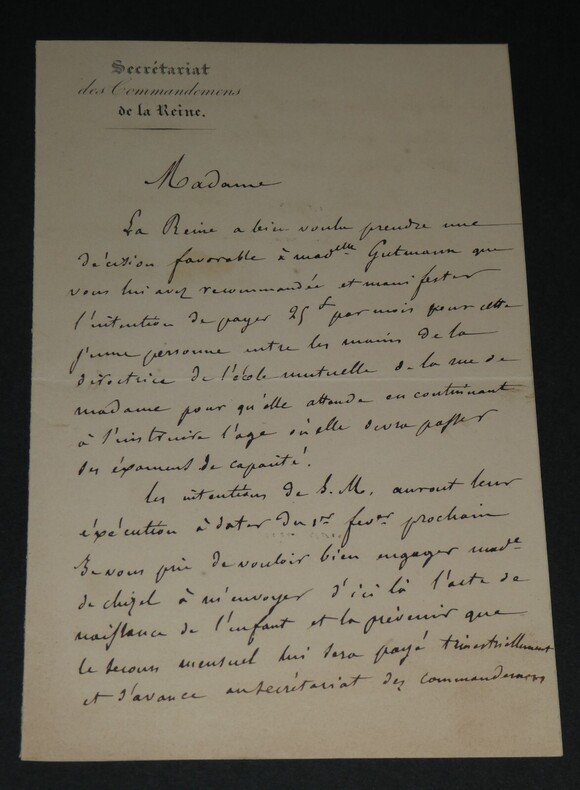 Secrétariat
des Commandemens
de la Reine.
Madame
La Reine a bien voulu prendre une
décision favorable à madelle Gutmann que
vous lui avez recommandée et manifester
l'intention de payer 25 f par mois pour cette
jeune personne entre les mains de la
directrice de l'école mutuelle de la rue de
madame pour qu'elle attende en continuant
à l'instruire l'age où elle devra passer
des examens de capacité.
Les intentions de S. M. auront leur
éxécution à dater du 1er fevər prochain
Je vous prie de vouloir bien engager made
de chizel à m'envoyer d'ici là l'acte de
naissance de l'enfant et la prévenir que
le secours mensuel lui sera payé trimestriellement
et d'avance au secrétariat des commandemens